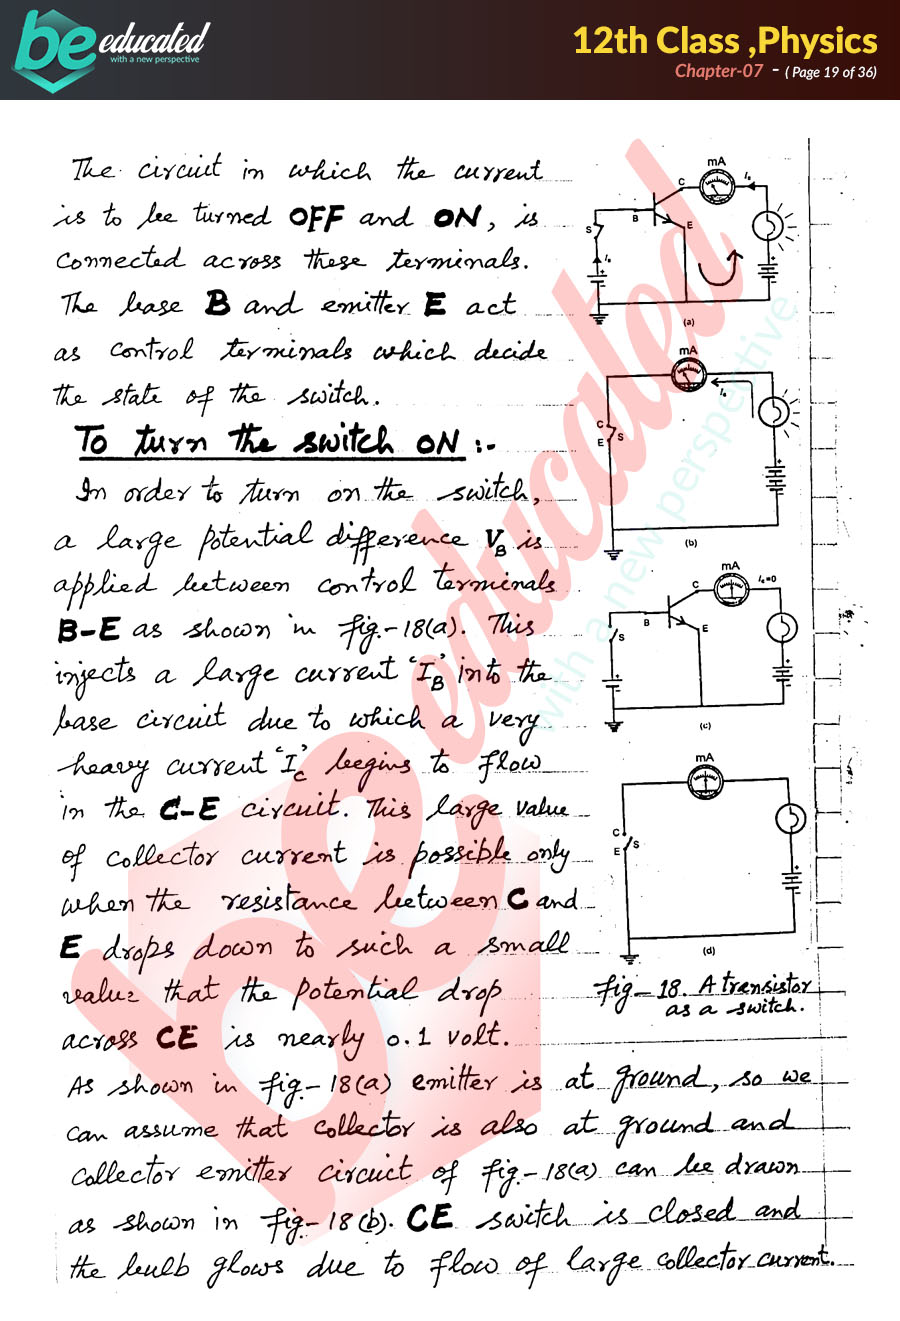 be educated
with a new perspective
12th Class ,Physics
Chapter-07 - ( Page 19 of 36)
The circuit in which the current
is to be turned OFF and ON, is
connected across these terminals.
The base B and emitter E act
as control terminals which decide
the state of the switch.
To turn the switch ON :-
In order to turn on the switch,
a large potential difference VB is
applied between control terminals
B-E as shown in fig.-18(a). This
injects a large current 'IB' into the
base circuit due to which a very
heavy current 'Ic' begins to flow
in the C-E circuit. This large value
of collector current is possible only
when the resistance between C and
E drops down to such a small
value that the potential drop
across CE is nearly 0.1 volt.
mA
C
B
E
S
(a)
mA
C
E
S
(b)
mA
Ic=0
C
B
E
S
(c)
mA
C
E
S
(d)
fig-18. A transistor
as a switch.
As shown in fig.-18(a) emitter is at ground, so we
can assume that collector is also at ground and
collector emitter circuit of fig.-18(a) can be drawn
as shown in fig.-18(b). CE switch is closed and
the bulb glows due to flow of large collector current.
be educated
with a new perspective